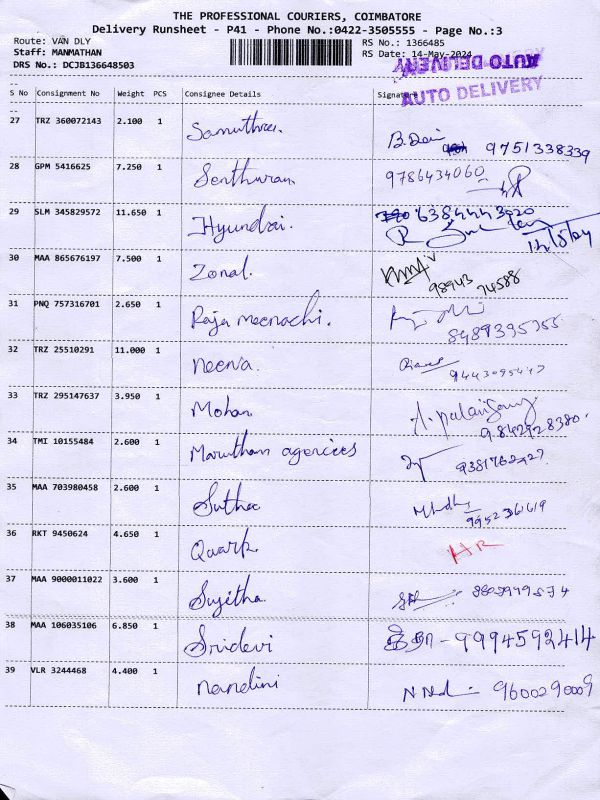 THE PROFESSIONAL COURIERS, COIMBATORE
Delivery Runsheet - P41 - Phone No.:0422-3505555 - Page No.:3
Route: VAN DLY RS No.: 1366485
Staff: MANMATHAN RS Date: 14-May-2024
DRS No.: DCJB136648503
AUTO DELIVERY
AUTO DELIVERY
S No Consignment No Weight PCS Consignee Details Signature
27 TRZ 360072143 2.100 1 Samuthra. B. Devi 9751338339
28 GPM 5416625 7.250 1 Senthuran 9786434060
29 SLM 345829572 11.650 1 Hyundai. 6384443920
14/5/24
30 MAA 865676197 7.500 1 Zonal. 98943 74588
31 PNQ 757316701 2.650 1 Raja meenachi. 8489395355
32 TRZ 25510291 11.000 1 neena.
33 TRZ 295147637 3.950 1 Mohan
9842928380.
34 TMI 10155484 2.600 1 Marutham agencies 9381762227
35 MAA 703980458 2.600 1 Sutha 9952361619
36 RKT 9450624 4.650 1 Quark. HR
37 MAA 9000011022 3.600 1 Sujitha.
38 MAA 106035106 6.850 1 Sridevi 9994592414
39 VLR 3244468 4.400 1 nandini 9600290009